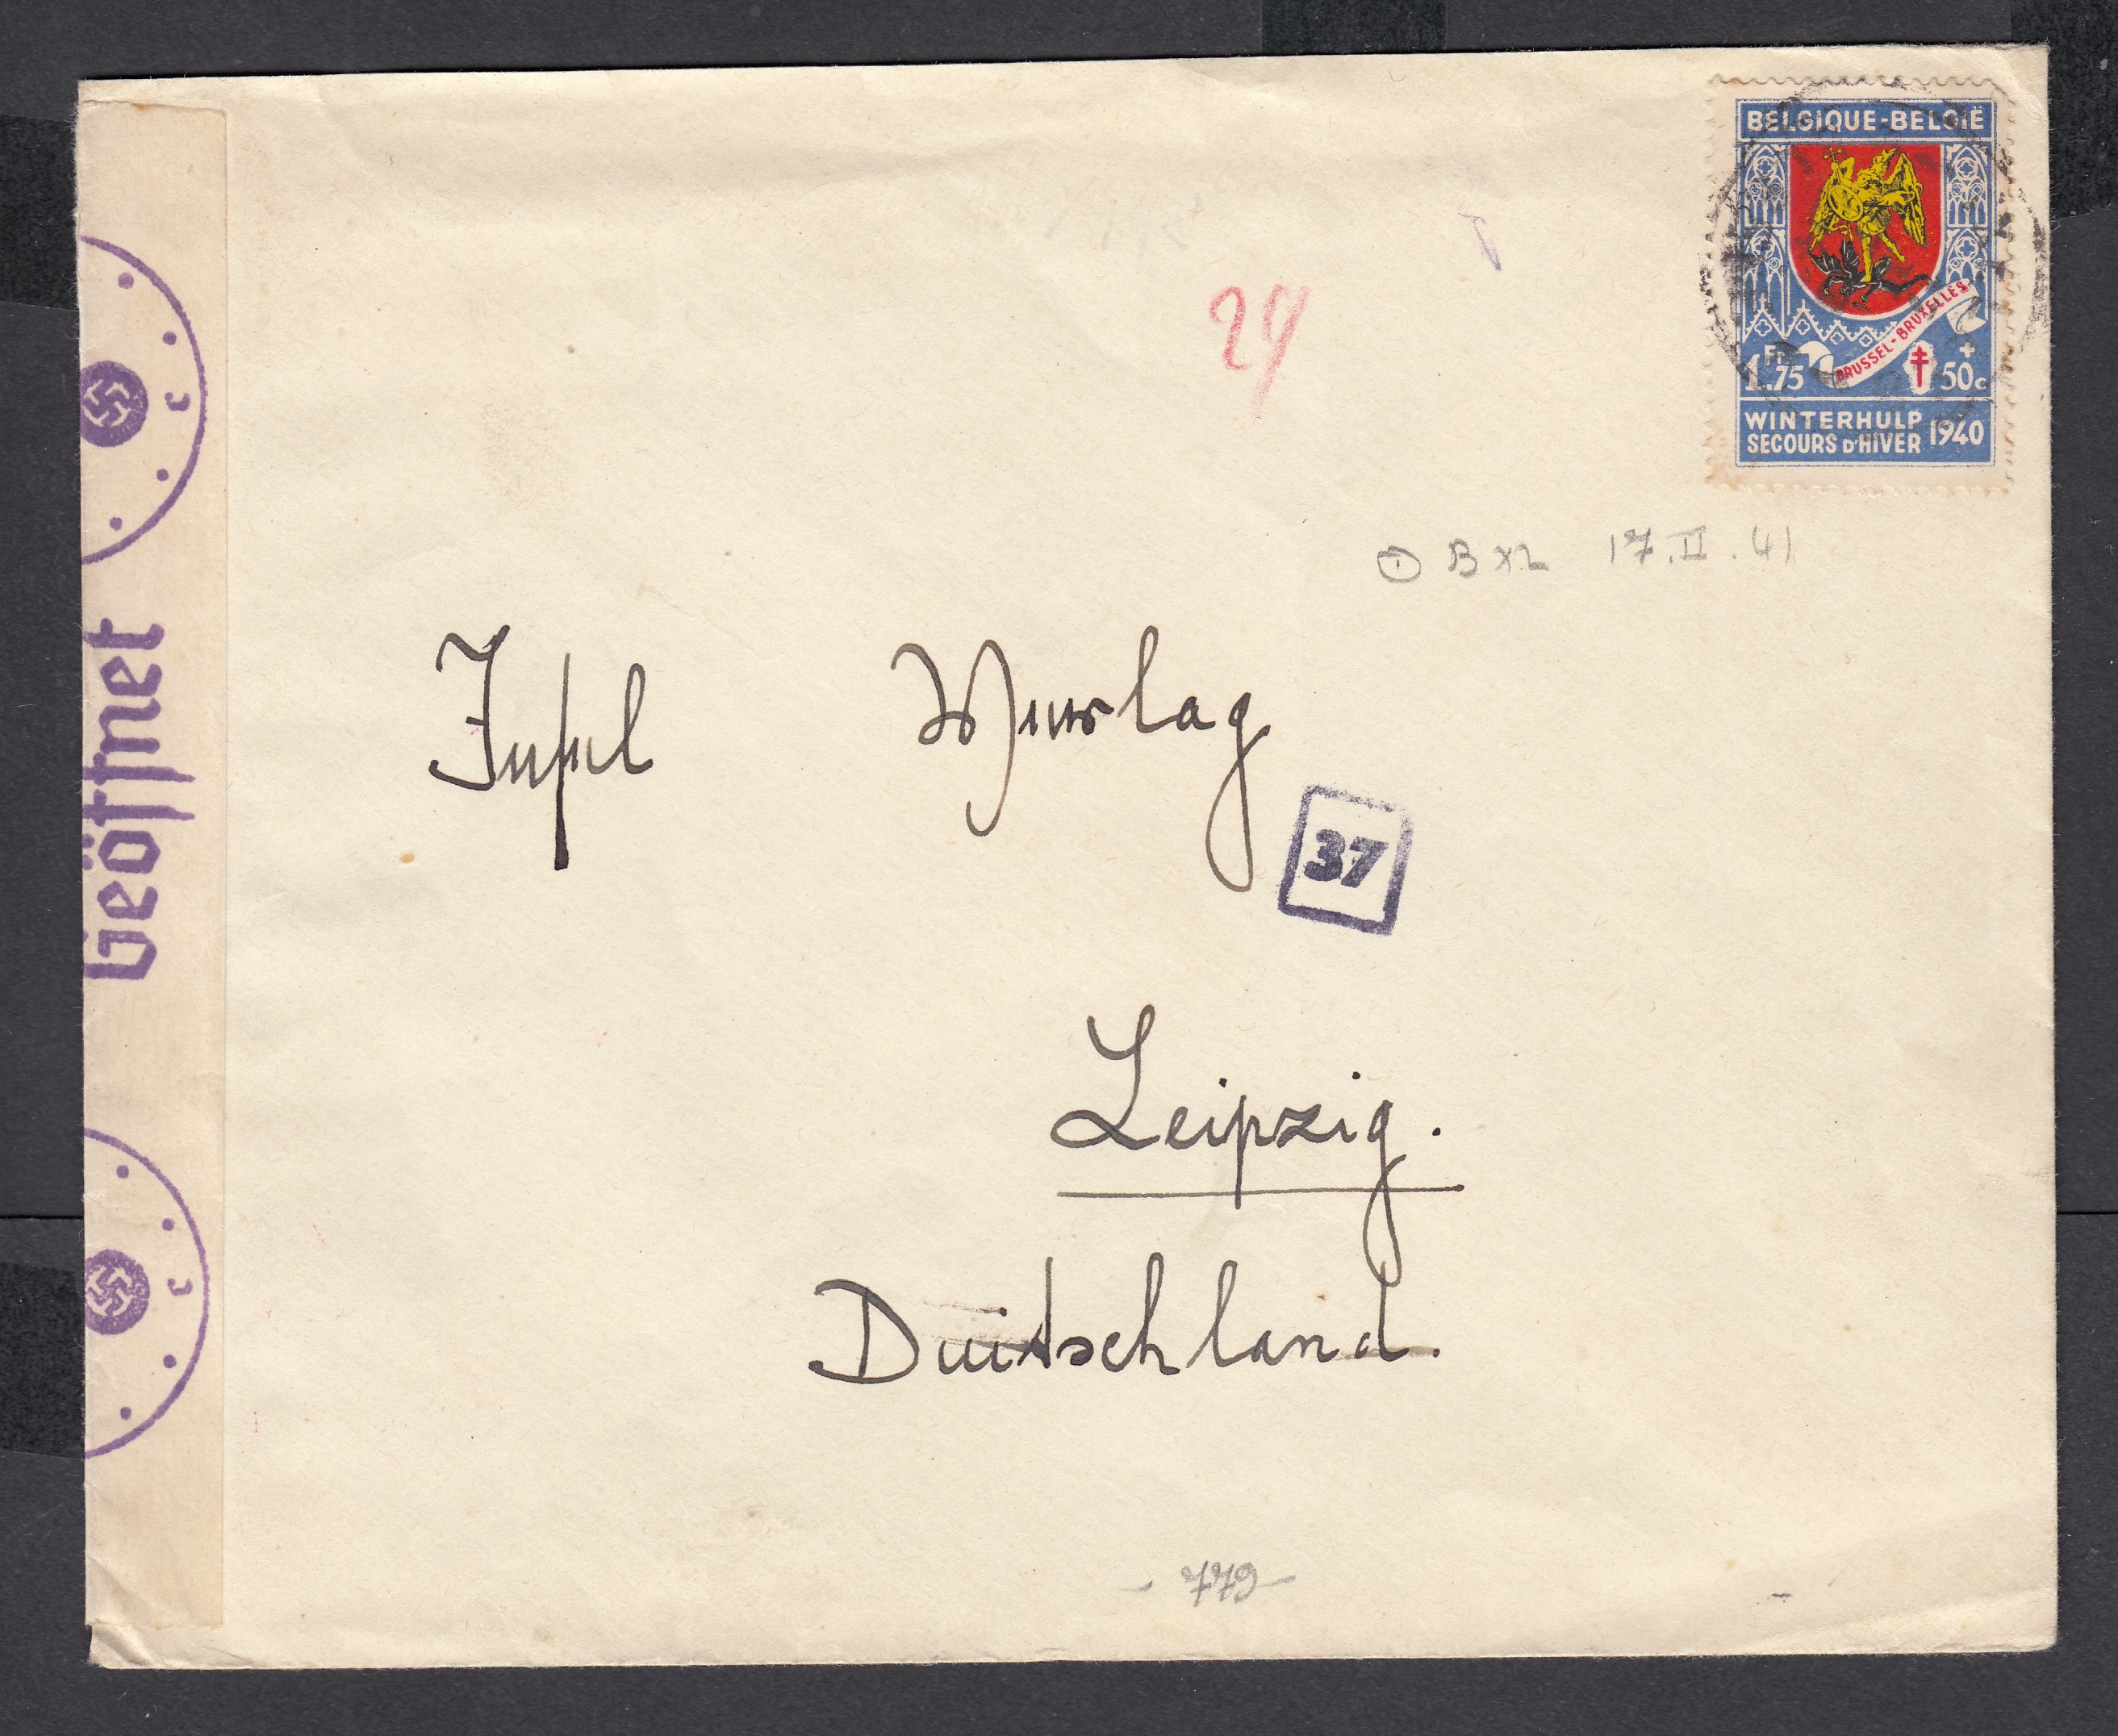 BELGIQUE-BELGIË
BRUSSEL-BRUXELLES
1Fr.75 + 50c
WINTERHULP
SECOURS D'HIVER 1940
24
BXL 17.II.41
Insel Verlag
37
Leipzig.
Duitschland.
Geöffnet
c
c
- 779 -